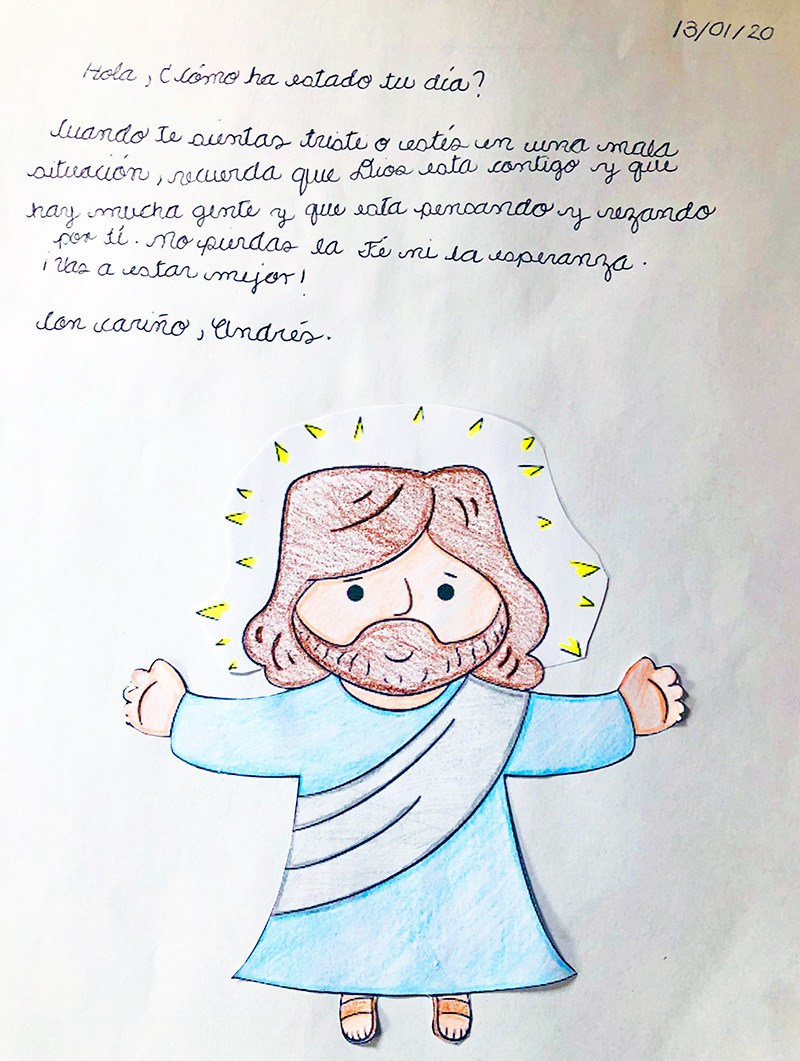 13/01/20
Hola, ¿Cómo ha estado tu día?
Cuando te sientas triste o estés en una mala
situación, recuerda que Dios esta contigo y que
hay mucha gente y que esta pensando y rezando
por tí. No pierdas la Fé ni la esperanza.
¡Vas a estar mejor!
Con cariño, Andrés.